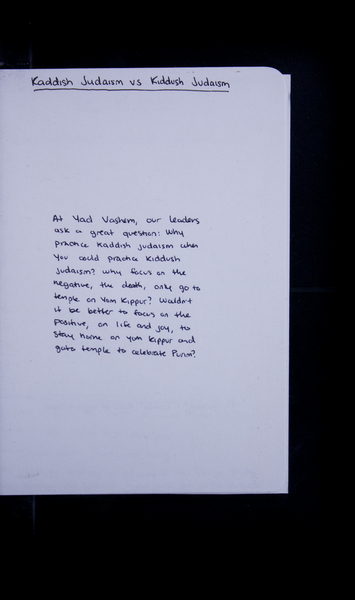 Kaddish Judaism vs Kiddush Judaism
At Yad Vashem, our leaders
ask a great question: Why
practice Kaddish Judaism when
you could practice Kiddush
Judaism? Why focus on the
negative, the death, only go to
temple on Yom Kippur? Wouldn't
it be better to focus on the
positive, on life and joy, to
stay home on Yom Kippur and
goto temple to celebrate Purim?